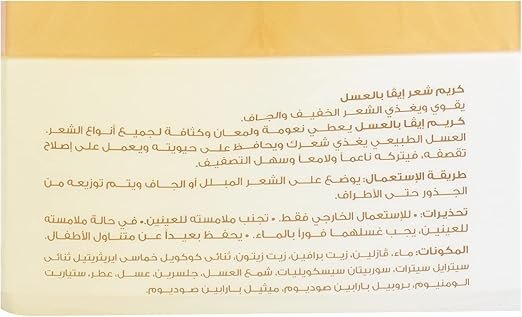 كريم شعر إيڤا بالعسل
يقوي ويغذي الشعر الخفيف والجاف.
كريم إيڤا بالعسل يعطي نعومة ولمعان وكثافة لجميع أنواع الشعر.
العسل الطبيعي يغذي شعرك ويحافظ على حيويته ويعمل على إصلاح
تقصفه، فيتركه ناعماً ولامعاً وسهل التصفيف.
طريقة الإستعمال: يوضع على الشعر المبلل أو الجاف ويتم توزيعه من
الجذور حتى الأطراف.
تحذيرات: • للإستعمال الخارجي فقط. • تجنب ملامسته للعينين. • في حالة ملامسته
للعينين، يجب غسلهما فوراً بالماء. • يحفظ بعيداً عن متناول الأطفال.
المكونات: ماء، ڤازلين، زيت برافين، زيت زيتون، ثنائى كوكويل خماسى ايريثريتيل ثنائى
سيترايل سيترات، سوربيتان سيسكويليات، شمع العسل، جلسرين، عسل، عطر، ستياريت
الومنيوم، بروبيل بارابين صوديوم، ميثيل بارابين صوديوم.